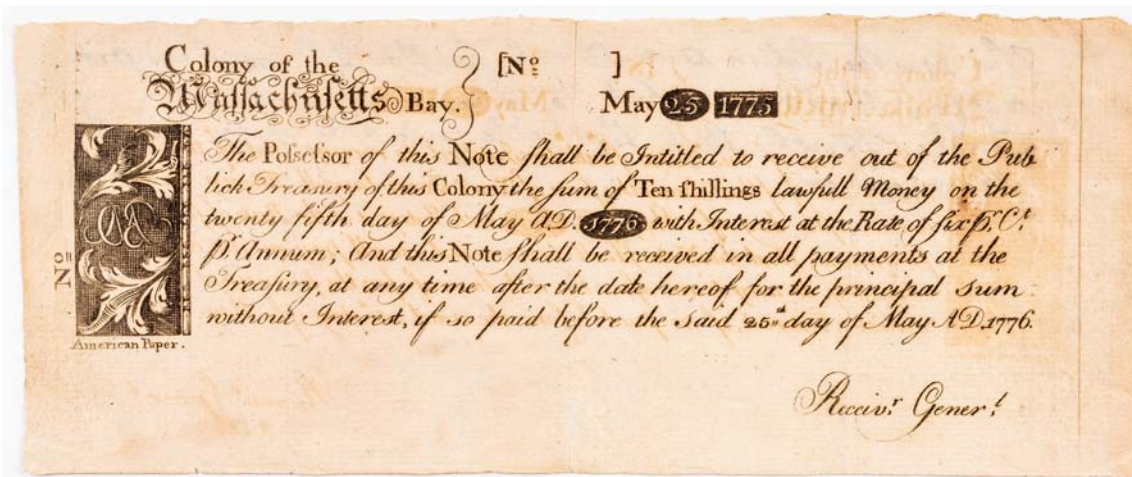 Colony of the
Massachusetts Bay.
[No ]
May 25 1775
The Poſseſsor of this Note ſhall be Intitled to receive out of the Pub
lick Treasury of this Colony the ſum of Ten ſhillings lawfull Money on the
twenty fifth day of May A.D. 1776 with Interest at the Rate of ſix pr. Ct.
pr. Annum; And this Note ſhall be received in all payments at the
Treaſury, at any time after the date hereof, for the principal sum
without Interest, if so paid before the said 25th day of May A.D. 1776.
No
American Paper.
Receivr. Generl.